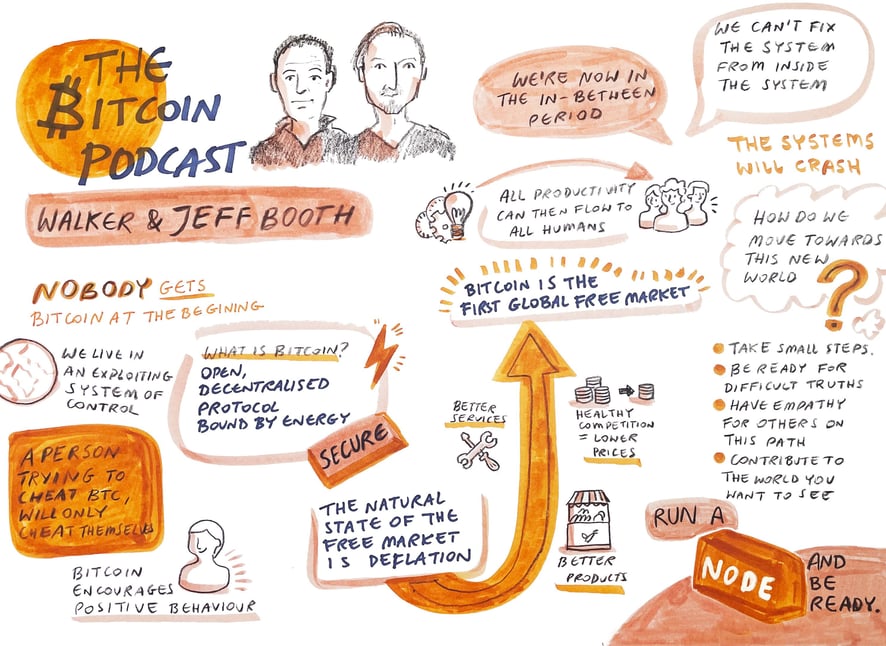 THE
BITCOIN
PODCAST
WALKER & JEFF BOOTH
NOBODY GETS
BITCOIN AT THE BEGINING
WE LIVE IN
AN EXPLOITING
SYSTEM OF
CONTROL
WHAT IS BITCOIN?
OPEN,
DECENTRALISED
PROTOCOL
BOUND BY ENERGY
SECURE
A PERSON
TRYING TO
CHEAT BTC,
WILL ONLY
CHEAT THEMSELVES
BITCOIN
ENCOURAGES
POSITIVE BEHAVIOUR
THE NATURAL
STATE OF THE
FREE MARKET
IS DEFLATION
BETTER
SERVICES
HEALTHY
COMPETITION
= LOWER
PRICES
BETTER
PRODUCTS
BITCOIN IS THE
FIRST GLOBAL FREE MARKET
ALL PRODUCTIVITY
CAN THEN FLOW TO
ALL HUMANS
WE'RE NOW IN
THE IN-BETWEEN
PERIOD
WE CAN'T FIX
THE SYSTEM
FROM INSIDE
THE SYSTEM
THE SYSTEMS
WILL CRASH
HOW DO WE
MOVE TOWARDS
THIS NEW
WORLD ?
TAKE SMALL STEPS.
BE READY FOR
DIFFICULT TRUTHS
HAVE EMPATHY
FOR OTHERS ON
THIS PATH
CONTRIBUTE TO
THE WORLD YOU
WANT TO SEE
RUN A
NODE
AND
BE
READY.